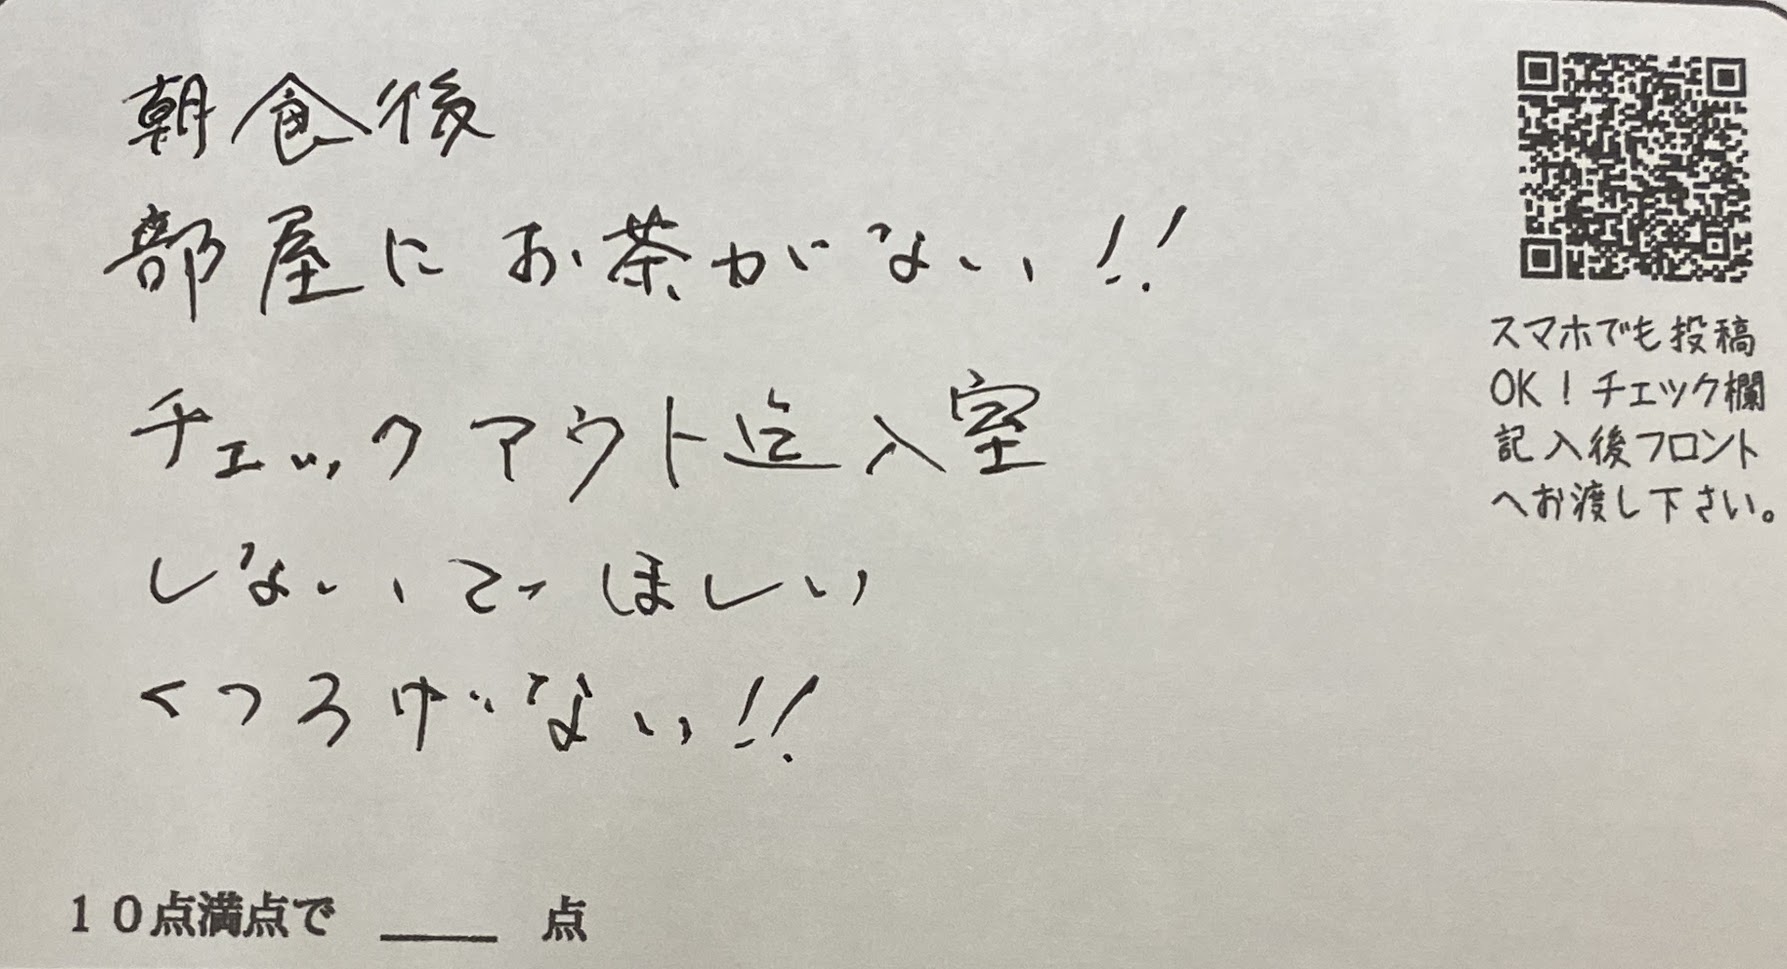 朝食後
部屋にお茶がない!!
チェックアウト迄入室
しないでほしい
くつろげない!!
スマホでも投稿
OK！チェック欄
記入後フロント
へお渡し下さい。
１０点満点で ＿＿ 点